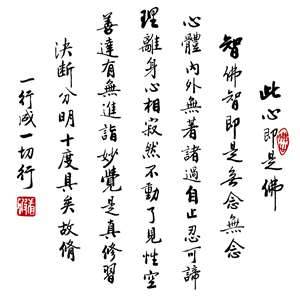 此心即是佛
智佛智即是無念無念
心體內外無著諸過自止忍可諦
理離身心相寂然不動了見性空
善達有無進詣妙覺是真修習
決斷分明十度具矣故脩
一行減一切行